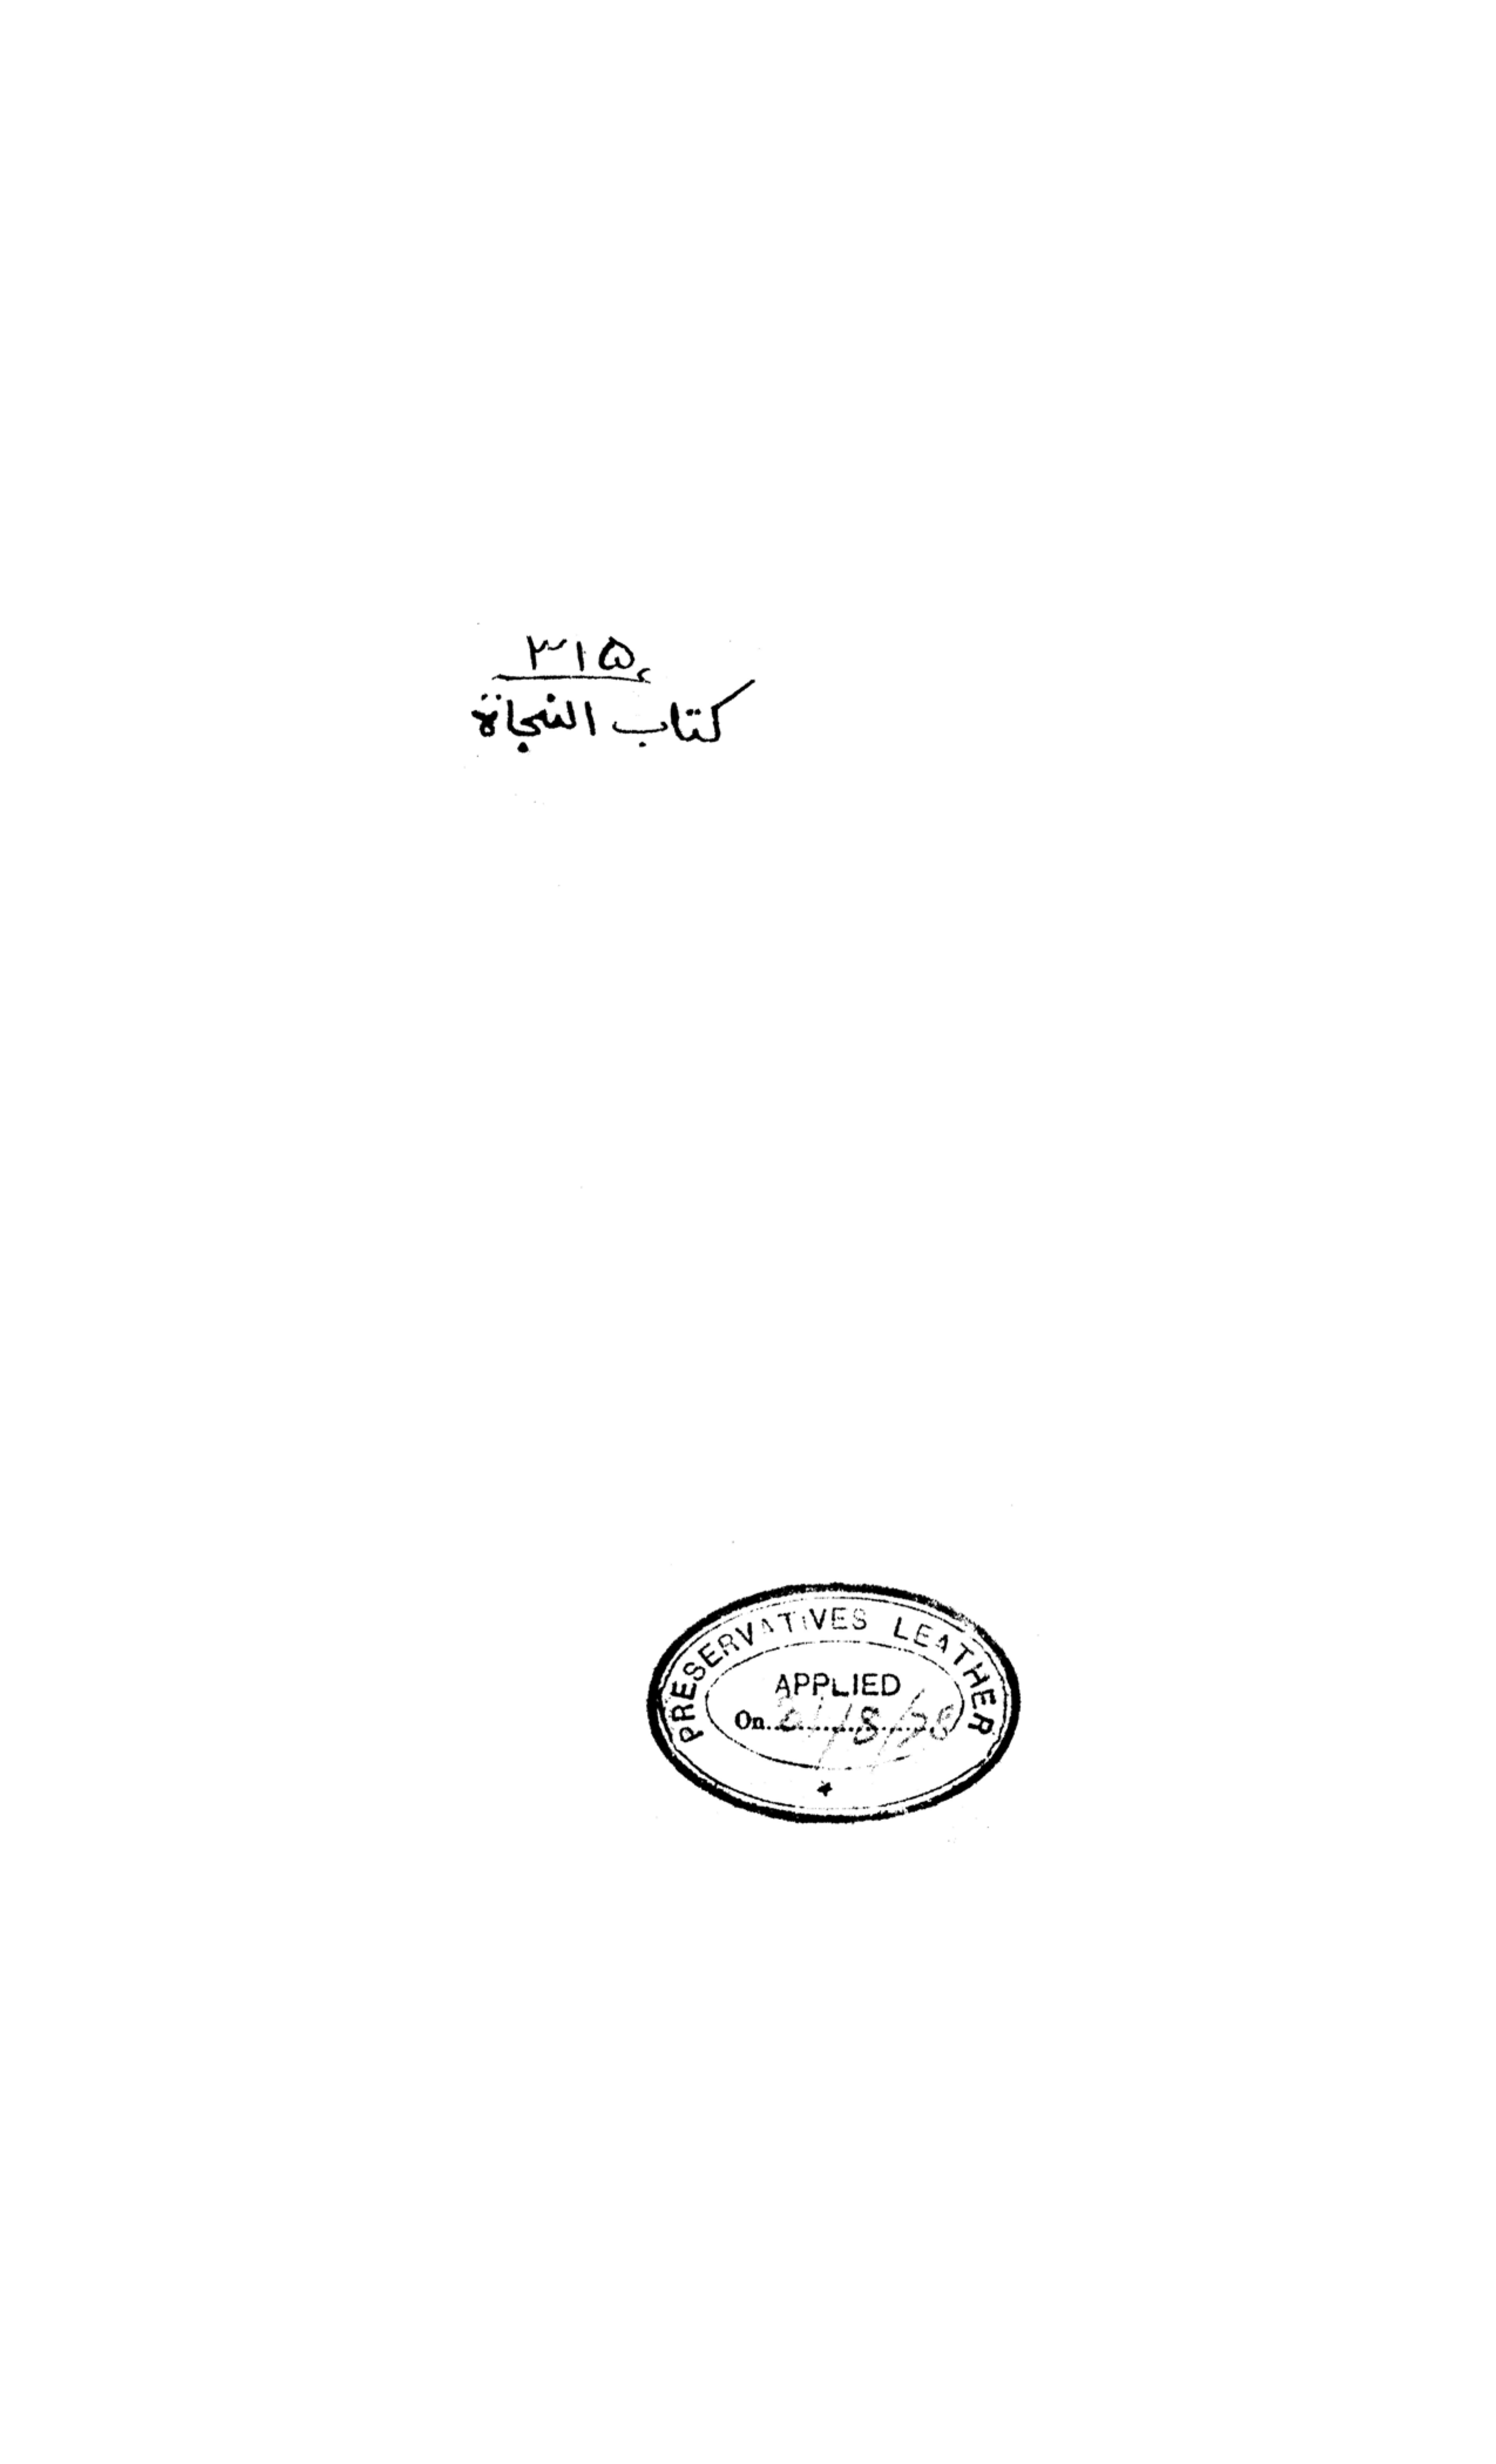 ٣١۵
كتاب النجاة
PRESERVATIVES LEATHER
APPLIED
On